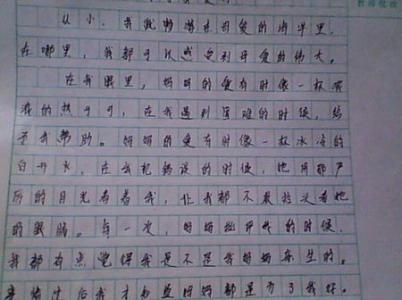 从小,我就畅游在母爱的海洋里,
在哪里,我都可以感受到母爱的伟大。
在我眼里,妈妈的爱有时像一杯浓
浓的热可可,在我遇到困难的时候,给
予我帮助。妈妈的爱有时像一杯冰凉的
白开水,在我犯错误的时候,她用那严
厉的目光看着我,让我都不敢抬头看她
的眼睛。每一次,妈妈批评我的时候,
我都有点觉得我是不是我妈妈亲生的。
事情过后我才知道妈妈都是为了我好。